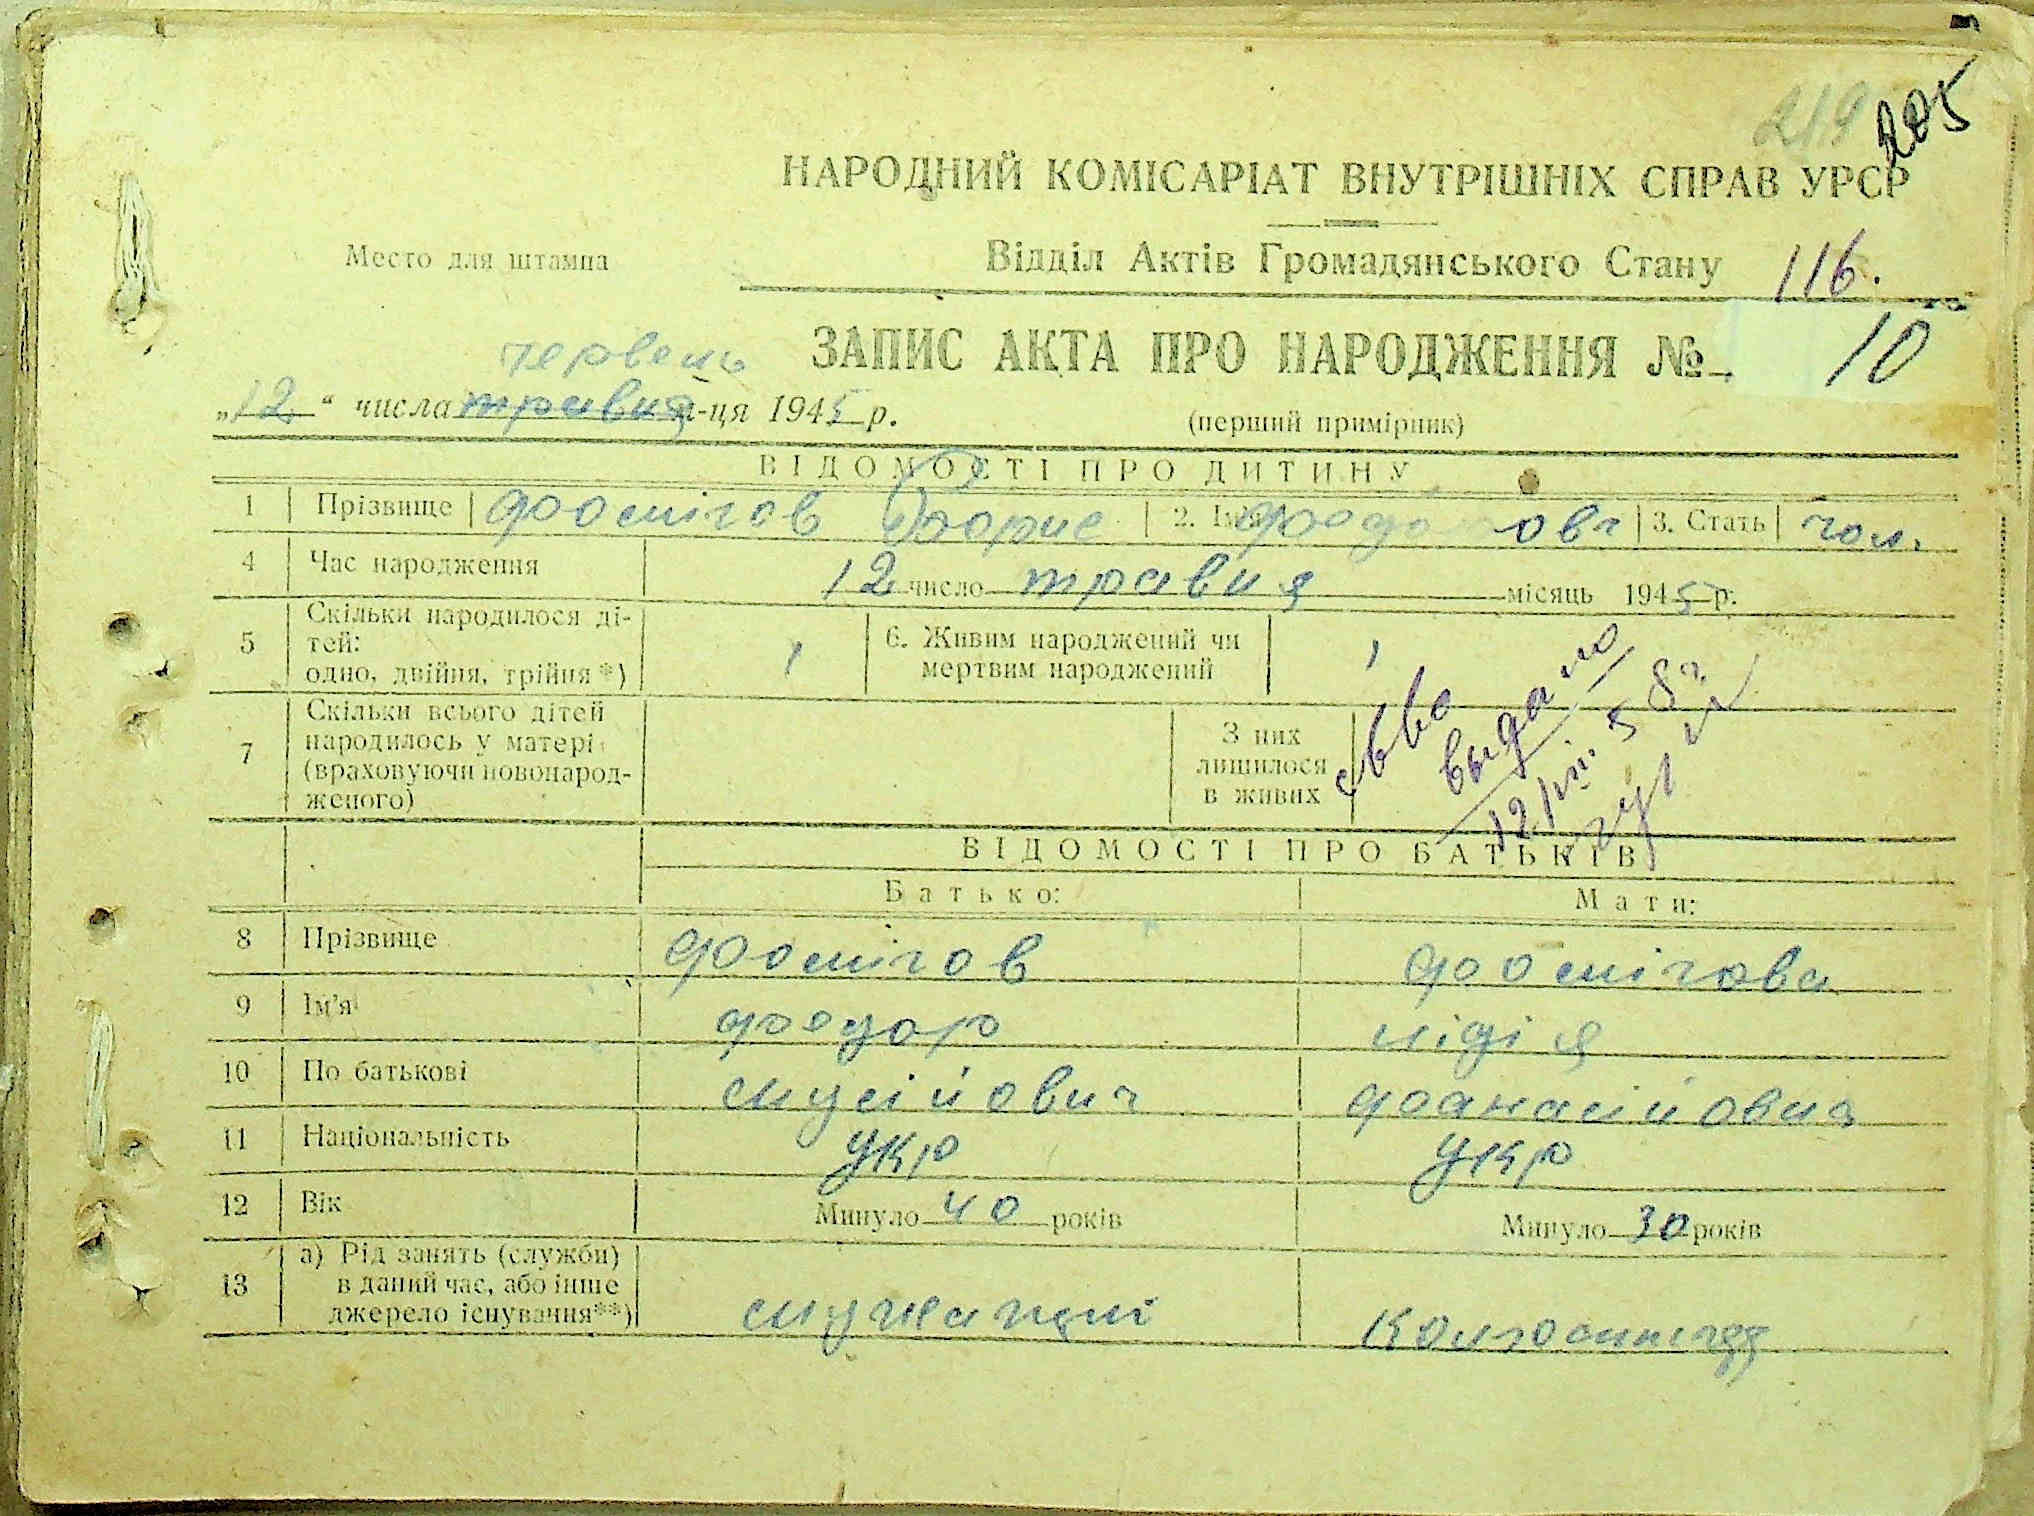 219 205
НАРОДНИЙ КОМІСАРІАТ ВНУТРІШНІХ СПРАВ УРСР
Место для штампа
Відділ Актів Громадянського Стану 116.
червень
ЗАПИС АКТА ПРО НАРОДЖЕННЯ № 10
„12" числа травня м-ця 1945 р.
(перший примірник)
ВІДОМОСТІ ПРО ДИТИНУ
1 Прізвище фомічов Борис 2. Ім'я 3. Стать чол.
4 Час народження 12 число травня місяць 1945 р.
5 Скільки народилося ді-
тей:
одно, двійня, трійня *) 1
6. Живим народжений чи
мертвим народжений 1
7 Скільки всього дітей
народилось у матері
(враховуючи новонарод-
женого)
З них
лишилося
в живих
св-во
выдано
12/VII 58 г.
ВІДОМОСТІ ПРО БАТЬКІВ
Батько: Мати:
8 Прізвище фомічов фомічова
9 Ім'я федор лідія
10 По батькові мусійович фанасійовна
11 Національність укр укр
12 Вік Минуло 40 років Минуло 30 років
13 а) Рід занять (служби)
в даний час, або інше
джерело існування**)